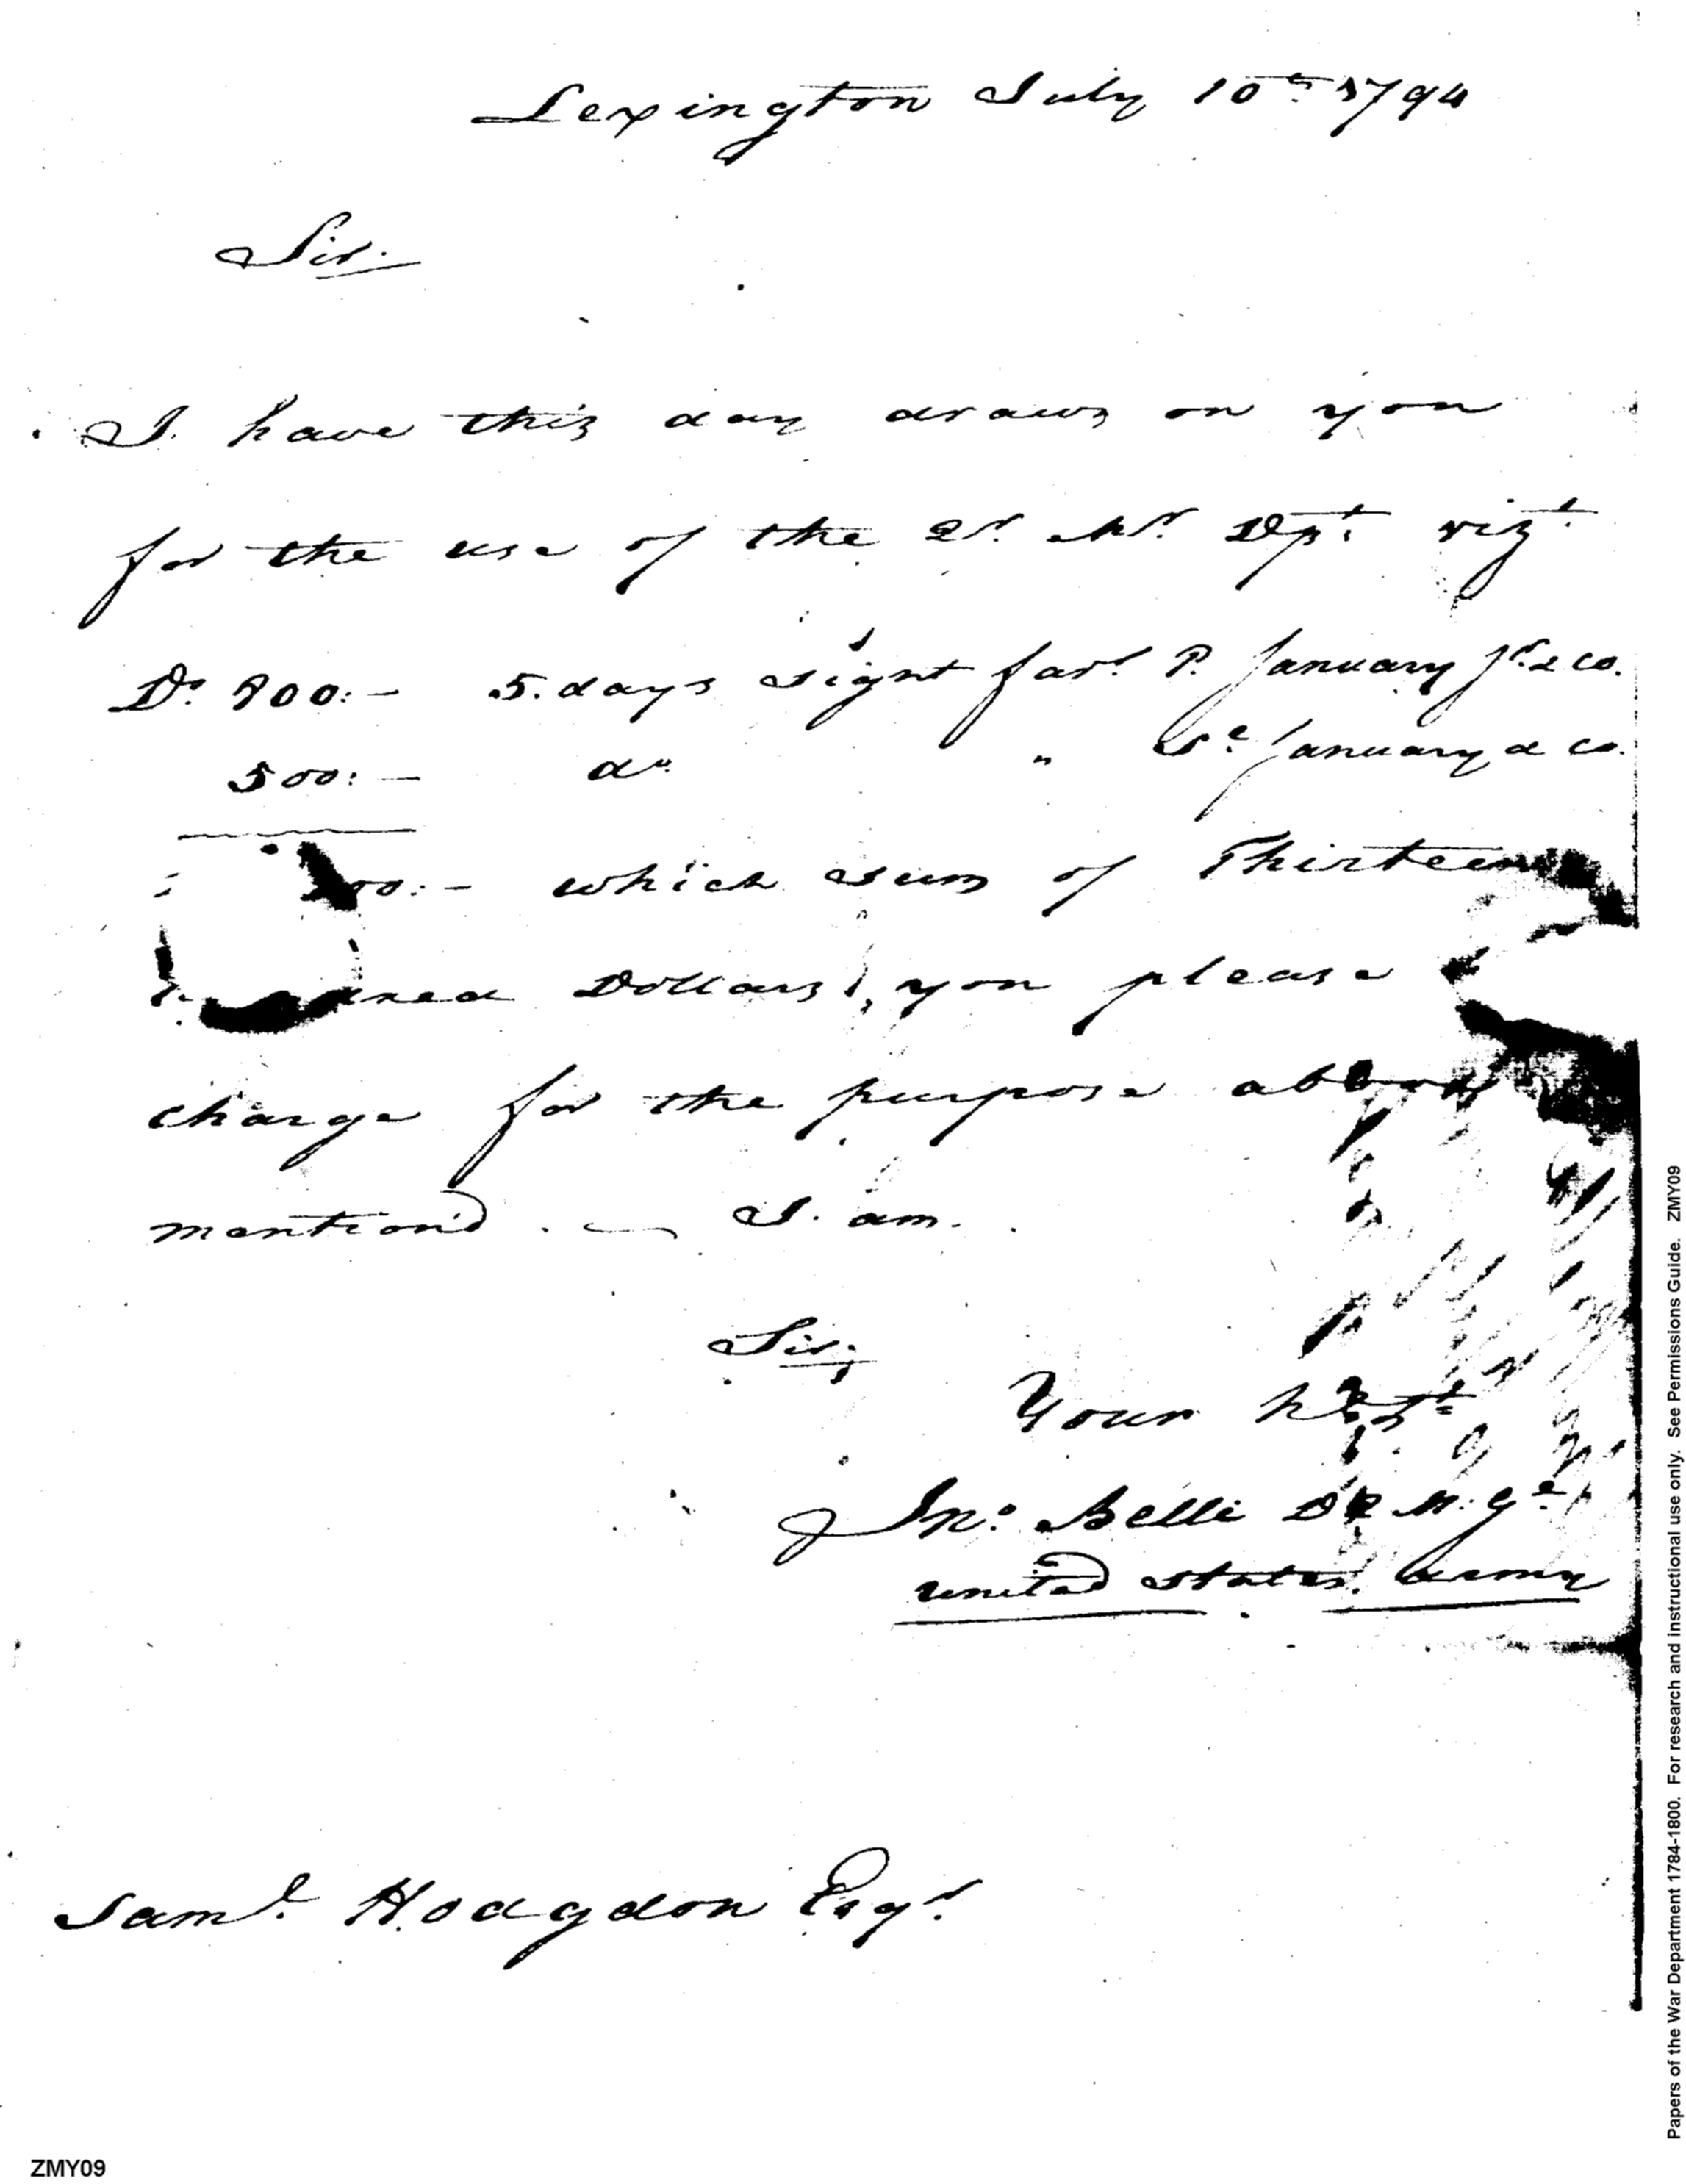 Lexington July 10th 1794
Sir.
I have this day drawn on you
for the use of the Qr. Mr. Dpt. vizt.
Ds. 800:- 5. days sight favr. P. January Jr. & co.
500:- do. " January & co.
00:- which sum of Thirteen
Dollars, you please
charge for the purpose above
mention'd. — I. am.
Sir,
Your hbst
Jno. Belli D Q M. Gl
United States. Army
Saml. Hodgdon Esqr.
ZMY09
Papers of the War Department 1784-1800. For research and instructional use only. See Permissions Guide. ZMY09